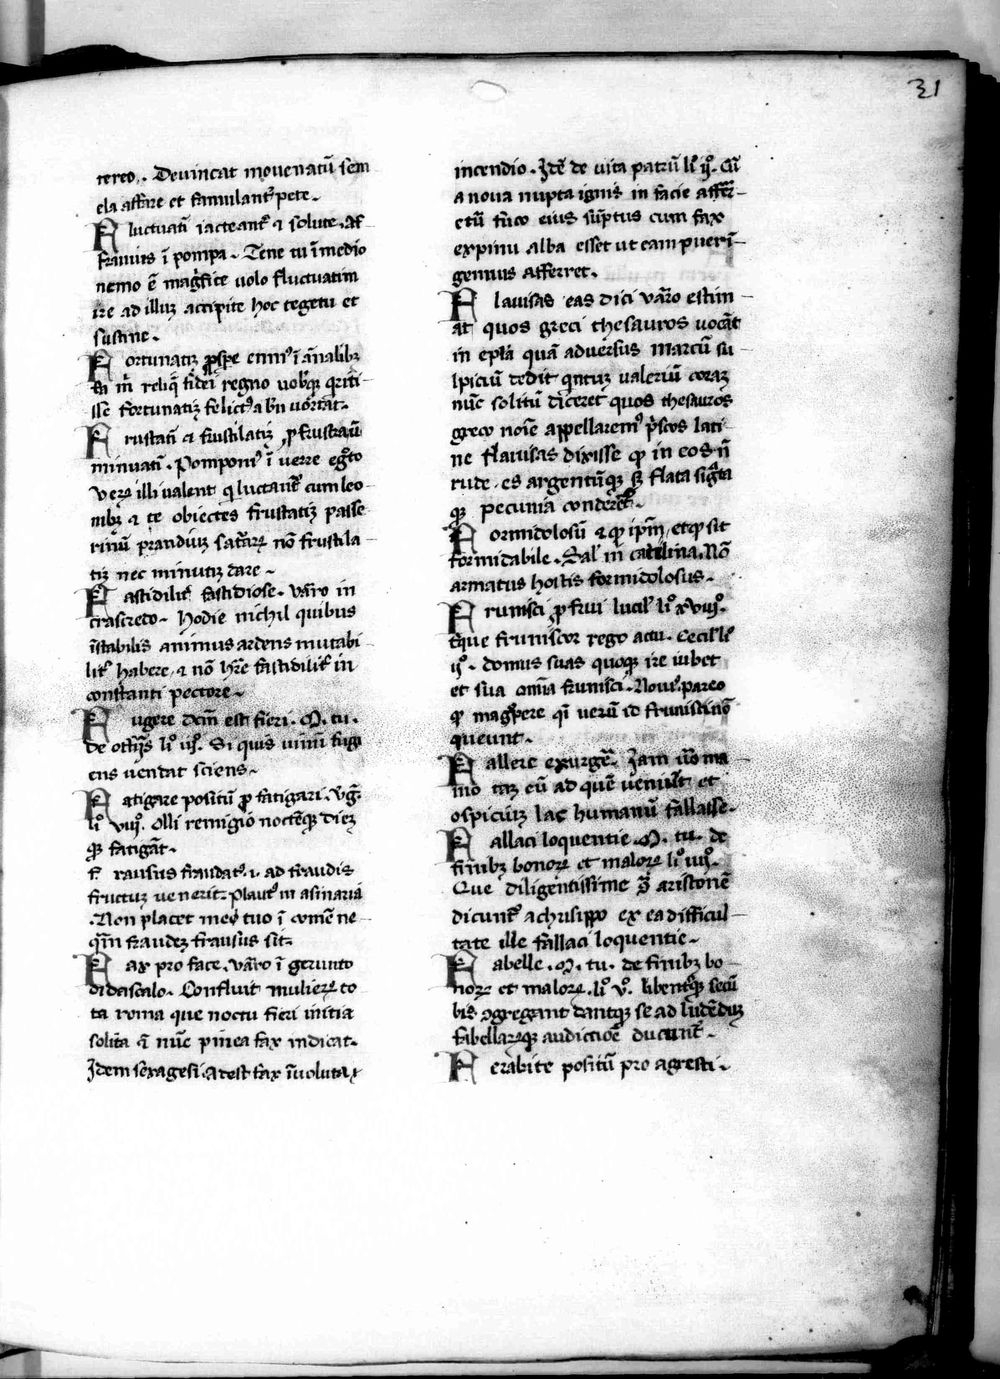 31
tereo. Devincat movenatū sem
ela affare et famulant᷒ pete.
Fluctuati᷒ iacteant᷒ ⁊ solute. Af
franius ī pompa. Tene tu ī medio
nemo ē magn̄fice volo fluctuatim
ire ad illuꝫ accipite hoc tegetu et
sustine.
Fortunatiꝫ ꝓspe enni᷒ ī ānalibꝫ
regno vobꝫ
isse fortunatiꝫ
Frustati᷒ ⁊ frustilatiꝫ ꝑ frusta ⁊
minutati᷒. Pomponi᷒ ī verre
illi valent q̇ luctant᷒ cum leo
nibꝫ ⁊ te obiectes frustatiꝫ passe
rinū prandiuꝫ nō frustila
tiꝫ nec minutiꝫ dare.
Fastidilit᷒ fastidiose. varo in
crascredo. Hodie nichil quibus
īstabilis animus ardens mutabi
lit᷒ habere ⁊ nō hr̄e fastidilit᷒ in
constanti pectore.
Fugere dem̄ est fieri. M. tu.
de offīs lio iijo. Si quis vinū fugi
ens vendat sciens.
Fatigare positū ꝓ fatigari. vg᷒.
lio viijo. Olli remigio noctēqꝫ dieꝫ
qꝫ fatigāt.
Frausus fraudat᷒. i. ad fraudis
fructuꝫ venerit. Plaut᷒ in asinaria
.Non placet meo tuo ī comē ne
qm̄ fraudeꝫ frausus sit.
Fax pro face. varo ī gerunto
didascalo. Confluit mulierꝝ to
ta roma que noctu fieri initia
solita ⁊ nūc pinea fax indicat.
Idem sexagesi. Adest fax īvoluta
incendio. Idē de vita patrū lio ijo. Cū
a nova nupta ignis in facie affer
etū foco eius sūptus cum fax
ex pinu alba esset ut eam pueri
genuus afferret.
Flavisas eas dici varo estim
at quos greci thesauros vocāt
in epla quā adversus marcū su
lpiciū dedit qntuꝫ valeriū coraꝫ
nūc solitū diceret quos thesauros
greco noīe appellarem᷒ pscos lati
ne flavisas dixisse ꝙ in eos nō
rude es argentūqꝫ sꝫ flata signata
qꝫ pecunia conderet᷒.
Formidolosū ⁊ ꝙ ipm̄ et ꝙ sit
formidabile. Sal᷒ in catilina. Nō
armatus hostis formidolosus.
Frunisci ꝓ frui lucil᷒ lio xviijo.
tqꝫue fruniscor rego actu. Cecil᷒ lio
ijo. domus suas quoqꝫ ire iubet
et sua omīa frunisci. Novi᷒ pareo
ꝙ magnpere qi verū id frunisci nō
queunt.
Fallere exurge. Iam vo ma
mō eū ad quē veniūt et
ospiciūꝫ lac humanū fallasse.
Fallaciloquentie. M. tu. de
finibꝫ bonorꝝ et malorꝝ lio iijo.
Que diligentissime ↄ̄ aristonē
dicunt᷒ a chrisippo ex ea difficul
tate ille fallaciloquentie.
Fabelle. M. tu. de finibꝫ bo
norꝝ et malorꝝ. lio vo. libentiqꝫ secū
bis agregant dantqꝫ se ad ludēduꝫ
fabellarꝝqꝫ audictioē ducunt᷒.
Ferabite positū pro agresti.